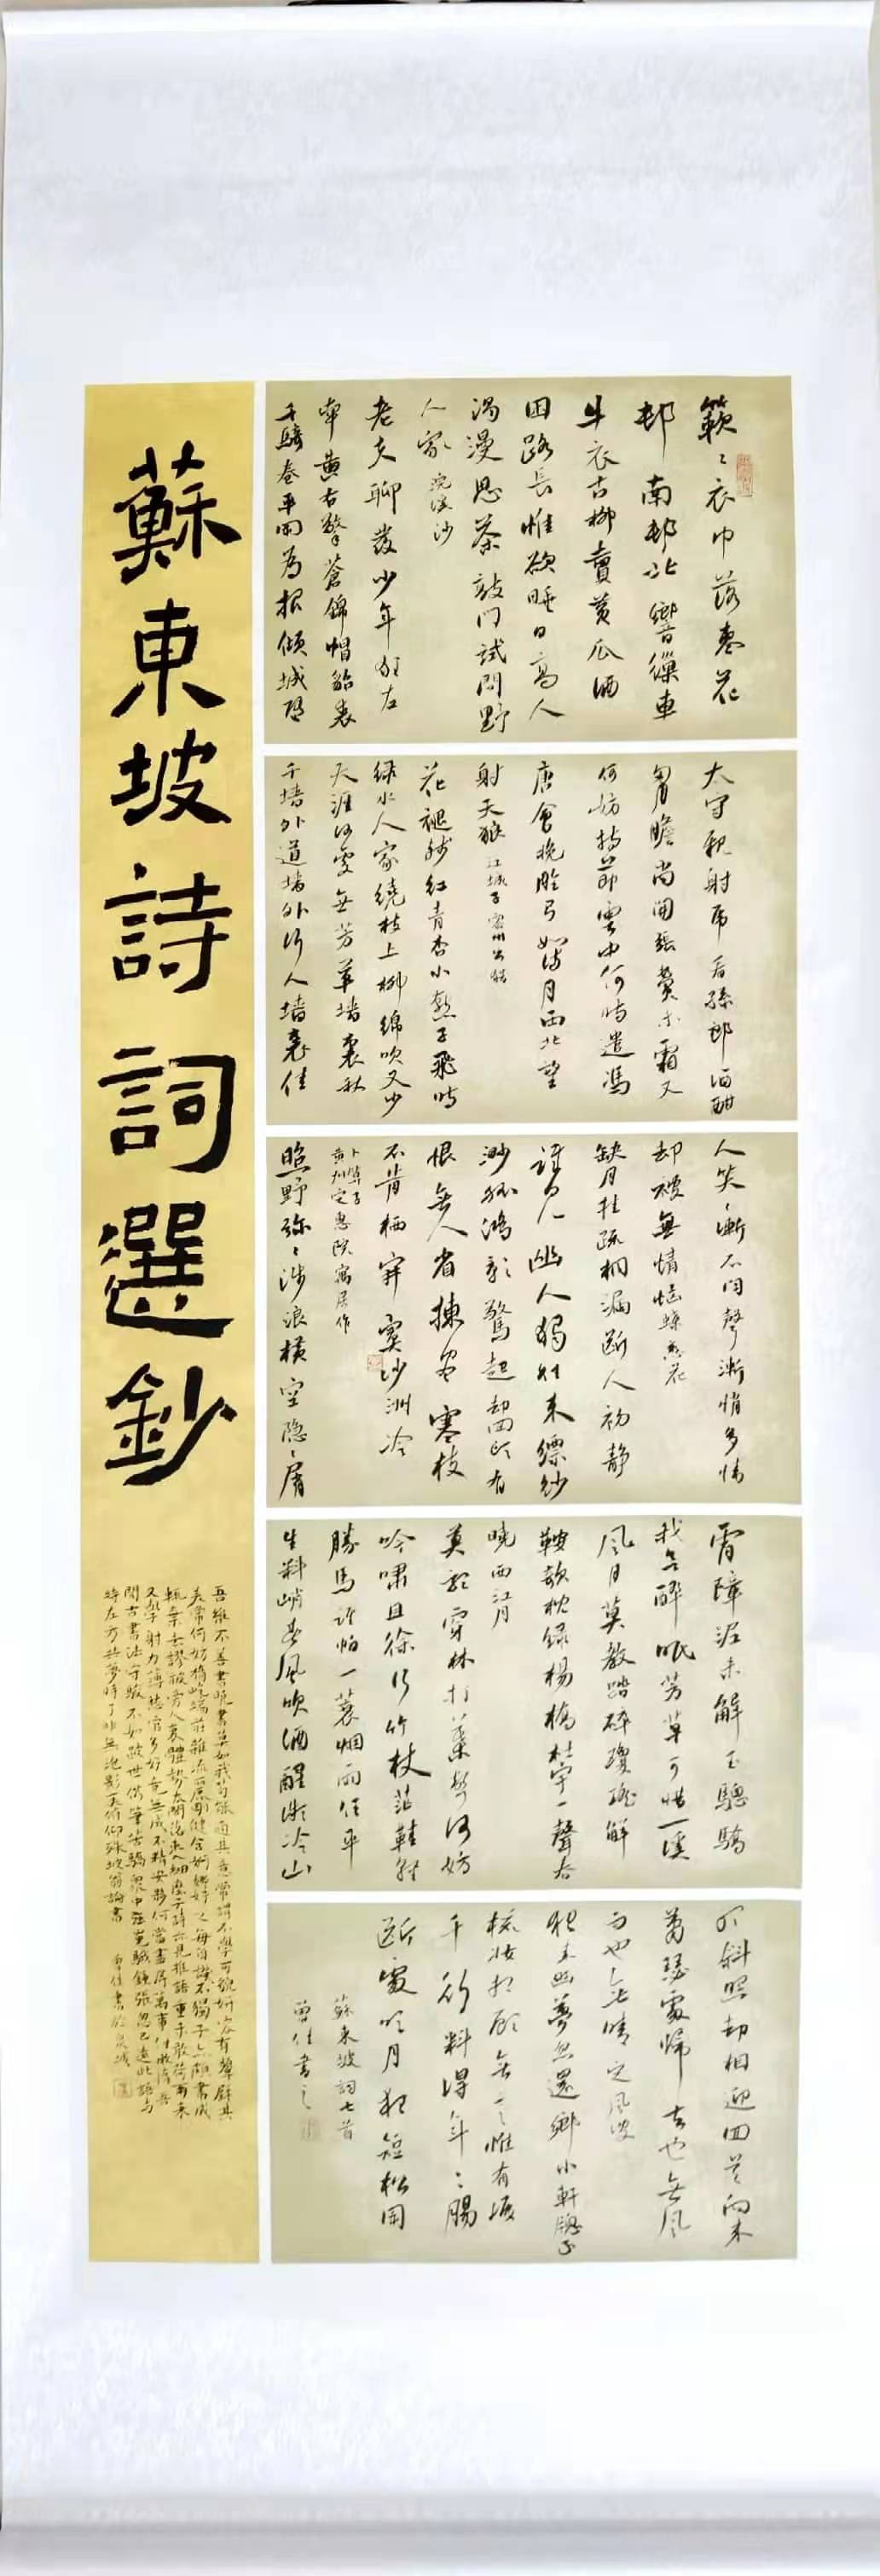 蘇東坡詩詞選鈔
簌〻衣巾落棗花
邨南邨北響繅車
牛衣古柳賣黃瓜酒
困路長惟欲睡日高人
渴漫思茶敲門試問野
人家 浣溪沙
老夫聊發少年狂左
牽黃右擎蒼錦帽貂裘
千騎卷平岡為報傾城隨
太守親射虎看孫郎酒酣
胸膽尚開張鬢未霜又
何妨持節雲中何時遣馮
唐會挽雕弓如滿月西北望
射天狼 江城子密州出獵
花褪殘紅青杏小燕子飛時
綠水人家繞枝上柳綿吹又少
天涯何處無芳草墻裏秋
千墻外道墻外行人墻裏佳
人笑〻漸不聞聲漸悄多情
却被無情惱 蝶戀花
缺月挂疏桐漏斷人初靜
誰見幽人獨往來縹緲
渺孤鴻影驚起却回頭有
恨無人省揀盡寒枝
不肯栖寂寞沙洲冷
卜算子
黃州定惠院寓居作
照野瀰〻淺浪橫空隱〻層
霄障泥未解玉驄驕
我欲醉眠芳草可惜一溪
風月莫教踏碎瓊瑤解
鞍欹枕綠楊橋杜宇一聲春
曉 西江月
莫聽穿林打葉聲何妨
吟嘯且徐行竹杖芒鞋輕
勝馬誰怕一蓑烟雨任平
生料峭春風吹酒醒微冷山
頭斜照却相迎回首向來
蕭瑟處歸去也無風
雨也無晴 定風波
夜來幽夢忽還鄉小軒窗正
梳妝相顧無言惟有淚
千行料得年〻腸
斷處明月夜短松岡
蘇東坡詞七首
曾佳書之
吾雖不善書曉書莫如我苟能通其意常謂不學可貌妍容有顰璧
美常何妨橢端莊雜流麗剛健含婀娜好之每自譏不獨子亦頗書成
輒棄去謬被旁人裹體勢本闊落結束入細麼子詩亦見推語重未敢荷爾來
又學射力薄愁官多好竟無成不精安夥何當盡屏萬事付懶惰吾
聞古書法守駿不如跛世俗筆苦驕衆中強嵬騀鍾張忽已遠此語與
時左 坡翁論書 曾佳書於